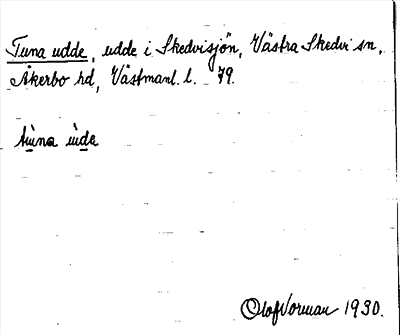 Tuna udde, udde i Skedvisjön, Västra Skedvi sn,
Åkerbo hd, Västmanl. l. 79.
tùna ùde
Olof Norman 1930.